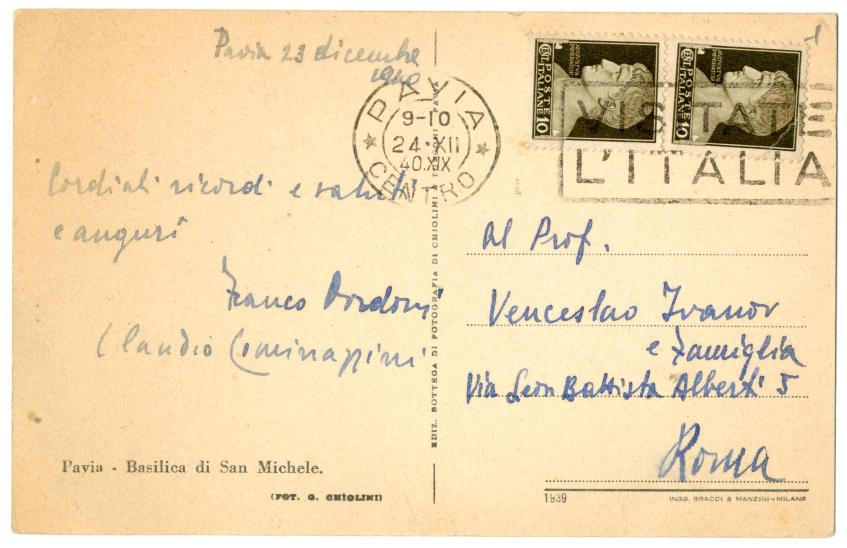 Pavia 23 dicembre
1940
PAVIA
9-10
24·XII
40.XIX
CENTRO
POSTE
ITALIANE
CENT.
10
POSTE
ITALIANE
CENT.
10
VISITATE
L'ITALIA
Cordiali ricordi e saluti
e auguri
Franco
Claudio
EDIZ. BOTTEGA DI FOTOGRAFIA DI CHIOLINI
al Prof.
Venceslao Ivanov
e Famiglia
Via Leon Battista Alberti 5
Roma
Pavia - Basilica di San Michele.
(FOT. G. CHIOLINI)
1939
INGG. BRACCI & MANZINI-MILANO